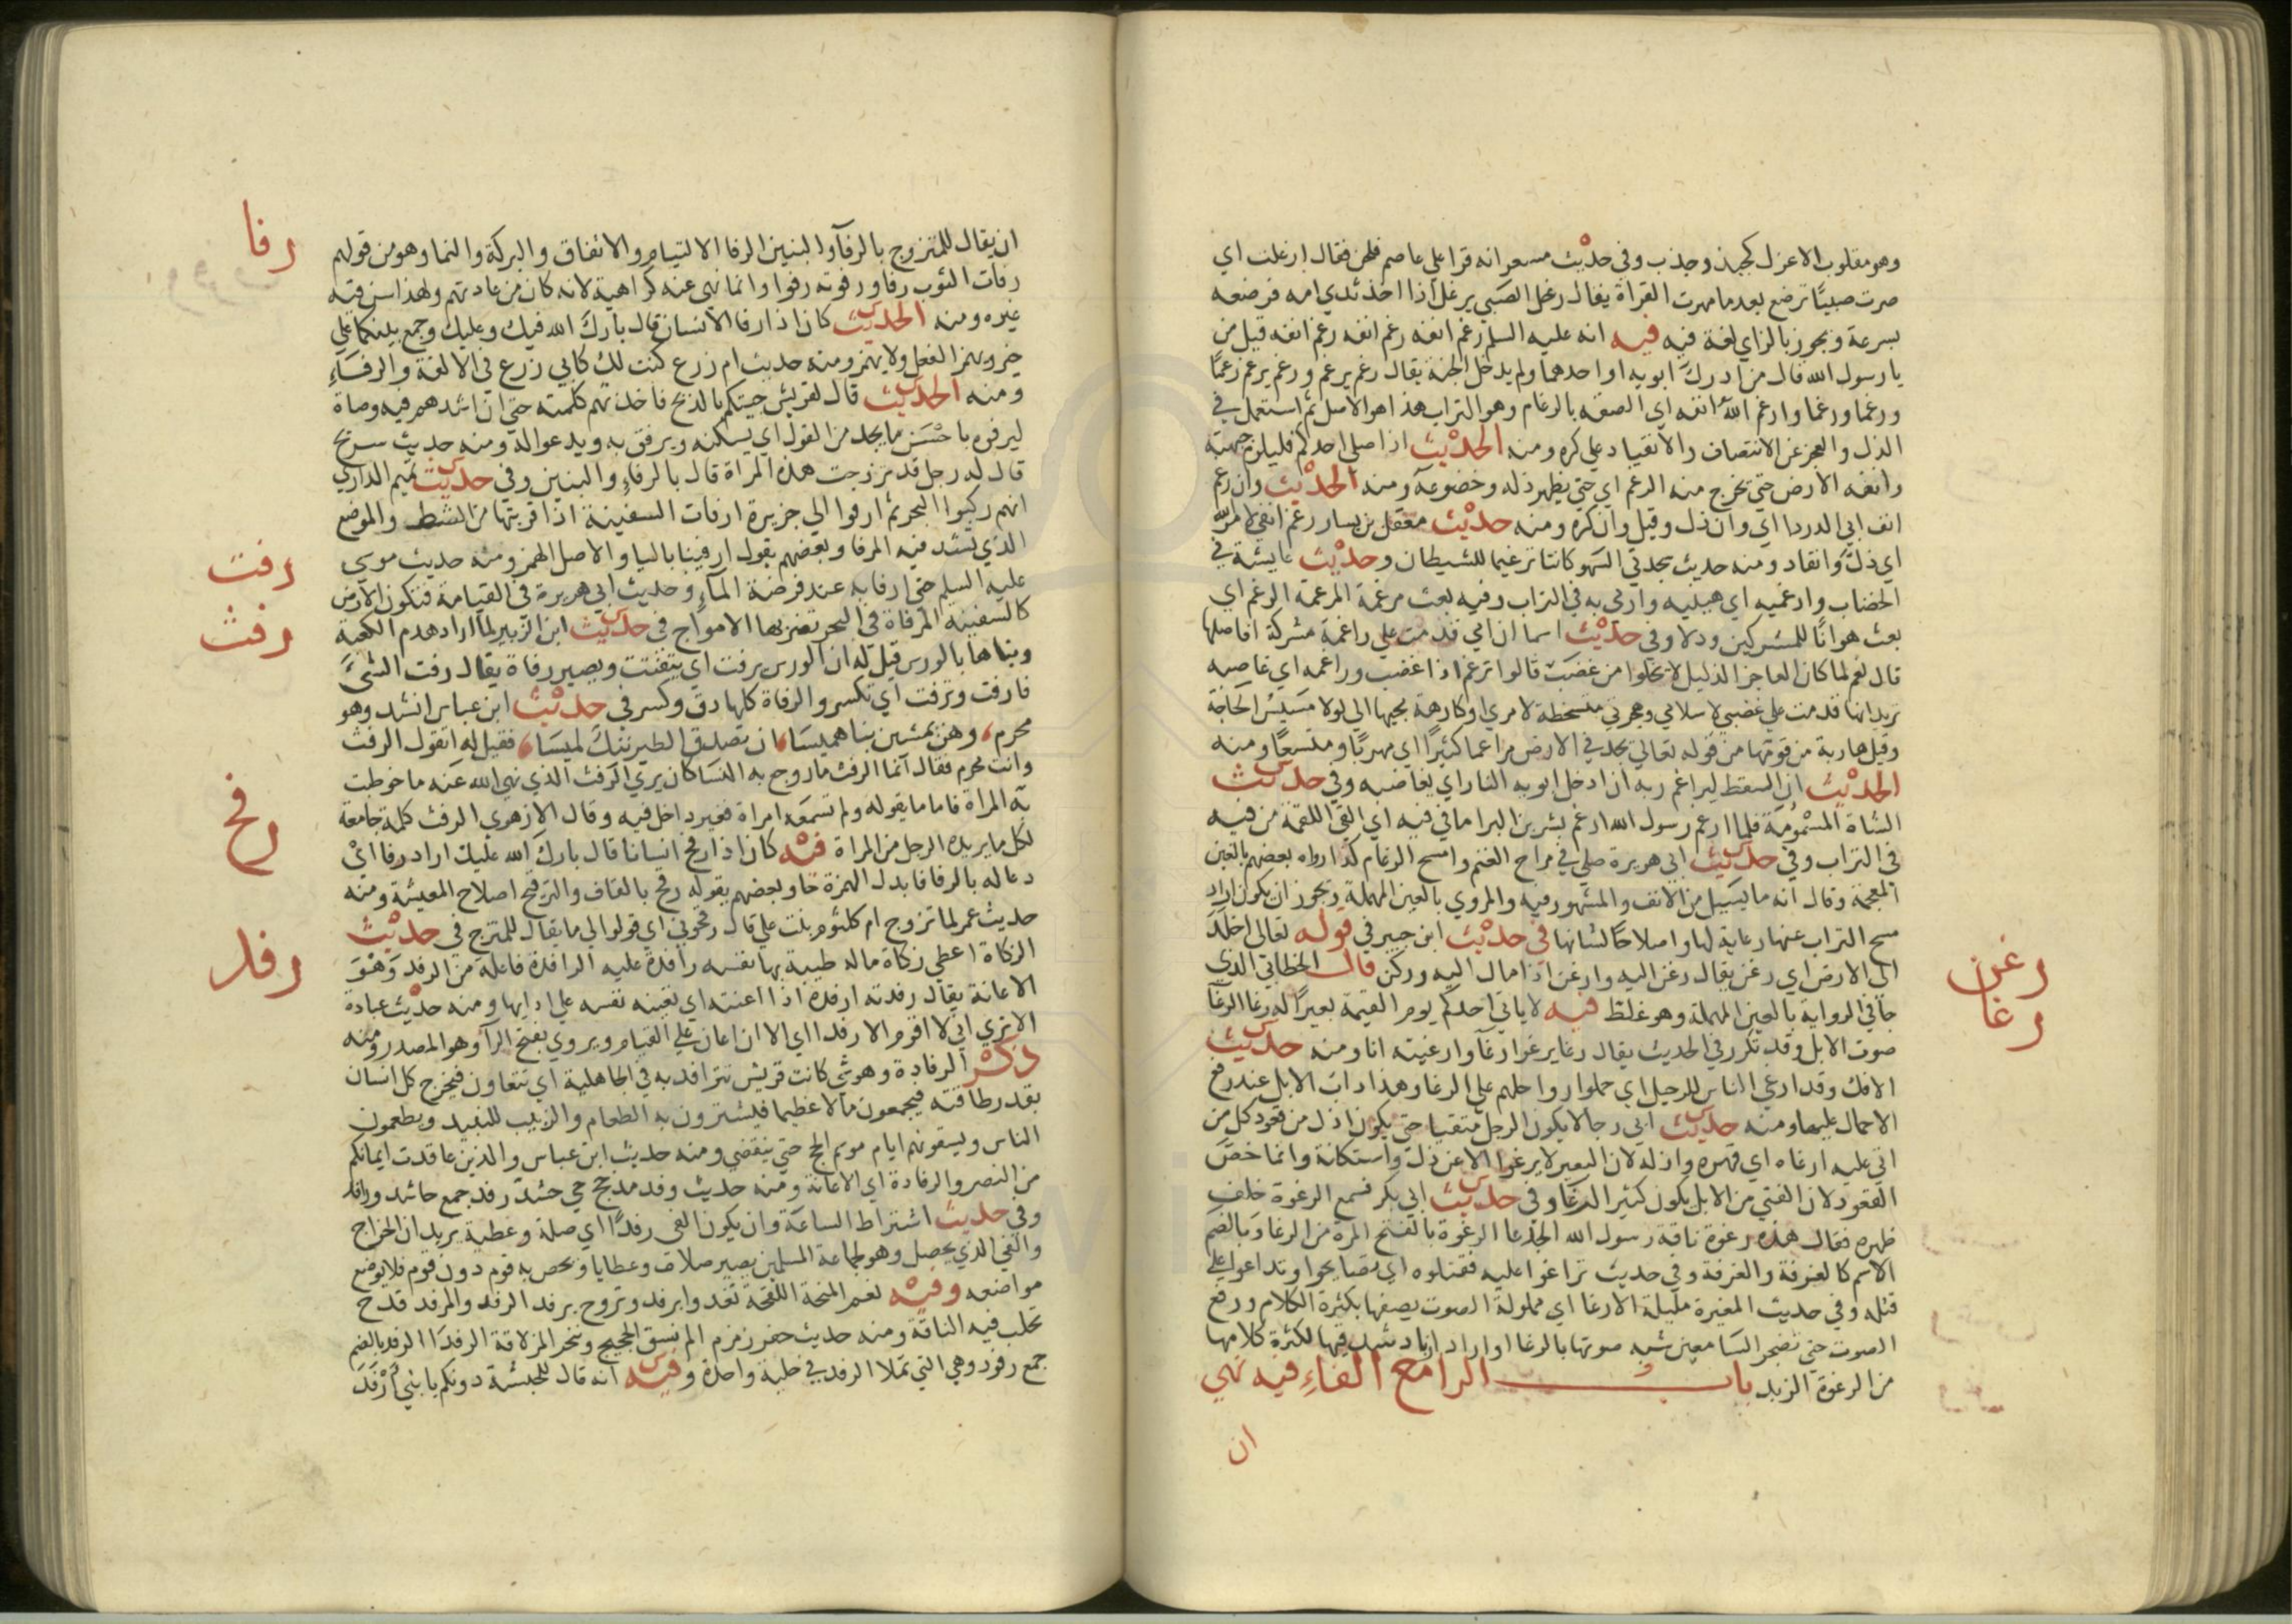 وهو مقلوب الاعزل كجبذ وجذب وفي حديث مسعر انه قرا علي عاصم فلحن فقال ارغلت اي
صرت صبيا ترضع بعد ما مهرت القراة يقال رغل الصبي يرغل اذا اخذ ثدي امه فرضعه
بسرعة ويجوز بالزاي لغة فيه فيه انه عليه السلم رغم انفه رغم انفه رغم انفه قيل من
يا رسول الله قال من ادرك ابويه او احدهما ولم يدخل الجنة يقال رغم يرغم ورغم يرغم رغما
ورغما ورغما وارغم الله انفه اي الصقه بالرغام وهو التراب هذا هو الاصل ثم استعمل في
الذل والعجز عن الانتصاف والانقياد علي كره ومنه الحديث اذا صلي احدكم فليلزم جبهته
وانفه الارض حتي يخرج منه الرغم اي حتي يظهر ذله وخضوعه ومنه الحديث وان رغم
انف ابي الدردا اي وان ذل وقيل وان كره ومنه حديث معقل بن يسار رغم انفي لامر الله
اي ذل وانقاد ومنه حديث سجدتي السهو كانتا ترغيما للشيطان وحديث عايشة في
الخضاب وارغميه اي اهينيه وارمي به في التراب وفيه بعثت مرغمة المرغمة الرغم اي
بعثت هوانا للمشركين وذلا وفي حديث اسما ان امي قدمت علي راغمة مشركة افاصلها
قال نعم لما كان العاجز الذليل لا يخلوا من غضب قالوا ترغم اذا غضب وراغمه اي غاضبه
تريد انها قدمت علي غضبي لاسلامي وهجرتي متسخطة لامري او كارهة مجيها الي لولا مسيس الحاجة
وقيل هاربة من قومها من قوله تعالي يجد في الارض مراغما كثيرا اي مهربا ومتسعا ومنه
الحديث ان السقط ليراغم ربه ان ادخل ابويه النار اي يغاضبه وفي حديث
الشاة المسمومة فلما ارغم رسول الله ارغم بشر بن البرا ما في فيه اي القي اللقمة من فيه
في التراب وفي حديث ابي هريرة صلي في مراح الغنم وامسح الرغام كذا رواه بعضهم بالغين
المعجمة وقال انه ما يسيل من الانف والمشهور فيه والمروي بالعين المهملة ويجوز ان يكون اراد
مسح التراب عنها رعاية لها واصلاحا لشانها في حديث ابن جبير في قوله تعالي اخلد
الي الارض اي رغن يقال رغن اليه وارغن اذا مال اليه وركن قال الخطابي الذي
جا في الرواية بالعين المهملة وهو غلط فيه لا ياتي احدكم يوم القيمة ببعير له رغا الرغا
صوت الابل وقد تكرر في الحديث يقال رغا يرغوا رغا وارغيته انا ومنه حديث
الافك وقد ارغي الناس للرحيل اي حملوا رواحلهم علي الرغا وهذا داب الابل عند رفع
الاحمال عليها ومنه حديث ابي رجا لا يكون الرجل متقيا حتي يكون اذل من قعود كل من
اتي عليه ارغاه اي قهره واذله لان البعير لا يرغوا الا عن ذل واستكانة وانما خص
القعود لان الفتي من الابل يكون كثير الرغا وفي حديث ابي بكر فسمع الرغوة خلف
ظهره فقال هذه رغوة ناقة رسول الله الجدعا الرغوة بالفتح المرة من الرغا وبالضم
الاسم كالغرفة والغرفة وفي حديث تراغوا عليه فقتلوه اي تصايحوا وتداعوا علي
قتله وفي حديث المغيرة مليلة الارغا اي مملولة الصوت يصفها بكثرة الكلام ورفع
الصوت حتي تضجر السامعين شبه صوتها بالرغا او اراد ازباد شدقيها لكثرة كلامها
من الرغوة الزبد باب الرا مع الفاء فيه نهي
ان
رغن
رغا
ان يقال للمتزوج بالرفآ والبنين الرفا الالتيام والاتفاق والبركة والنما وهو من قولهم
رفات الثوب رفا ورفوته رفوا وانما نهي عنه كراهية لانه كان من عادتهم ولهذا سن فيه
غيره ومنه الحديث كان اذا رفا الانسان قال بارك الله فيك وعليك وجمع بينكما علي
خير ويهمز الفعل ولا يهمز ومنه حديث ام زرع كنت لك كابي زرع في الالفة والرفاء
ومنه الحديث قال لقريش جيتكم بالذبح فاخذتهم كلمته حتي ان اشدهم فيه وصاة
ليرفوه باحسن ما يجد من القول اي يسكنه ويرفق به ويدعوا له ومنه حديث سريح
قال له رجل قد تزوجت هذه المراة قال بالرفاء والبنين وفي حديث تميم الداري
انهم ركبوا البحر ثم ارفوا الي جزيرة ارفات السفينة اذا قربتها من الشط والموضع
الذي يشد فيه المرفا وبعضهم يقول ارفينا باليا والاصل الهمز ومنه حديث موسي
عليه السلم حتي ارفا به عند فرضة المآء وحديث ابي هريرة في القيامة فتكون الارض
كالسفينة المرفاة في البحر تضربها الامواج في حديث ابن الزبير لما اراد هدم الكعبة
وبناها بالورس قيل له ان الورس يرفت اي يتفتت ويصير رفاة يقال رفت الشي
فارفت وترفت اي تكسر والرفاة كلما دق وكسر في حديث ابن عباس انشد وهو
محرم وهن يمشين بنا هميسا ان تصدق الطير ننك لميسا فقيل له اتقول الرفث
وانت محرم فقال انما الرفث ما روجع به النسا كان يري الرفث الذي نهي الله عنه ما خوطبت
به المراة فاما ما يقوله ولم تسمعه امراة فغير داخل فيه وقال الازهري الرفث كلمة جامعة
لكل ما يريده الرجل من المراة فيه كان اذا رفح انسانا قال بارك الله عليك اراد رفا اي
دعا له بالرفا فابدل الهمزة حا وبعضهم يقوله رقح بالقاف والترقيح اصلاح المعيشة ومنه
حديث عمر لما تزوج ام كلثوم بنت علي قال رفحوني اي قولوا لي ما يقال للمتزوج في حديث
الزكاة اعطي زكاة ماله طيبة بها نفسه رافدة عليه الرافدة فاعلة من الرفد وهو
الاعانة يقال رفدته ارفده اذا اعنته اي تعينه نفسه علي ادايها ومنه حديث عبادة
الا تري اني لا اقوم الا رفدا اي الا ان اعان علي القيام ويروي بفتح الرآ وهو المصدر ومنه
ذكر الرفادة وهو شي كانت قريش تترافد به في الجاهلية اي تتعاون فيخرج كل انسان
بقدر طاقته فيجمعون مالا عظيما فيشترون به الطعام والزبيب للنبيذ ويطعمون
الناس ويسقونهم ايام موسم الحج حتي ينقضي ومنه حديث ابن عباس والذين عاقدت ايمانكم
من النصر والرفادة اي الاعانة ومنه حديث وفد مذحج حي حشد رفد جمع حاشد ورافد
وفي حديث اشتراط الساعة وان يكون الفي رفدا اي صلة وعطية يريد ان الخراج
والفي الذي يحصل وهو لجماعة المسلمين يصير صلات وعطايا ويخص به قوم دون قوم فلا يوضع
مواضعه وفيه نعم المنحة اللقحة تغدوا برفد وتروح برفد الرفد والمرفد قدح
تحلب فيه الناقة ومنه حديث حفر زمزم الم نسق الحجيج وننحر المزلاقة الرفدا الرفد بالضم
جمع رفود وهي التي تملا الرفد في حلبة واحدة وفيه انه قال للحبشة دونكم يا بني ارفد
رفا
رفت
رفث
رفح
رفد